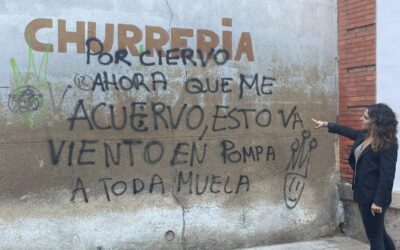 CHURRERIA
POR CIERVO
AHORA QUE ME
ACUERVO, ESTO VA
VIENTO EN POMPA
A TODA MUELA